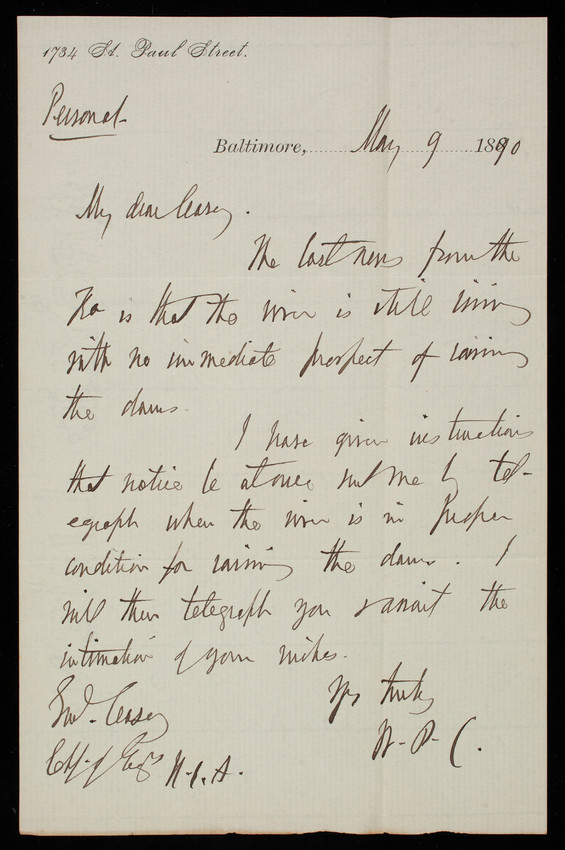 1734 St. Paul Street.
Personal
Baltimore, May 9 1890
My dear Casey.
The last news from the
Ka is that the river is still rising
with no immediate prospect of raising
the dams.
I have given instructions
that notice be at once sent me by tel-
egraph when the river is in proper
condition for raising the dams. I
will then telegraph you & await the
intimation of your wishes.
Yrs truly
W. P. C.
Genl. Casey
Chf. of Engrs U.S.A.